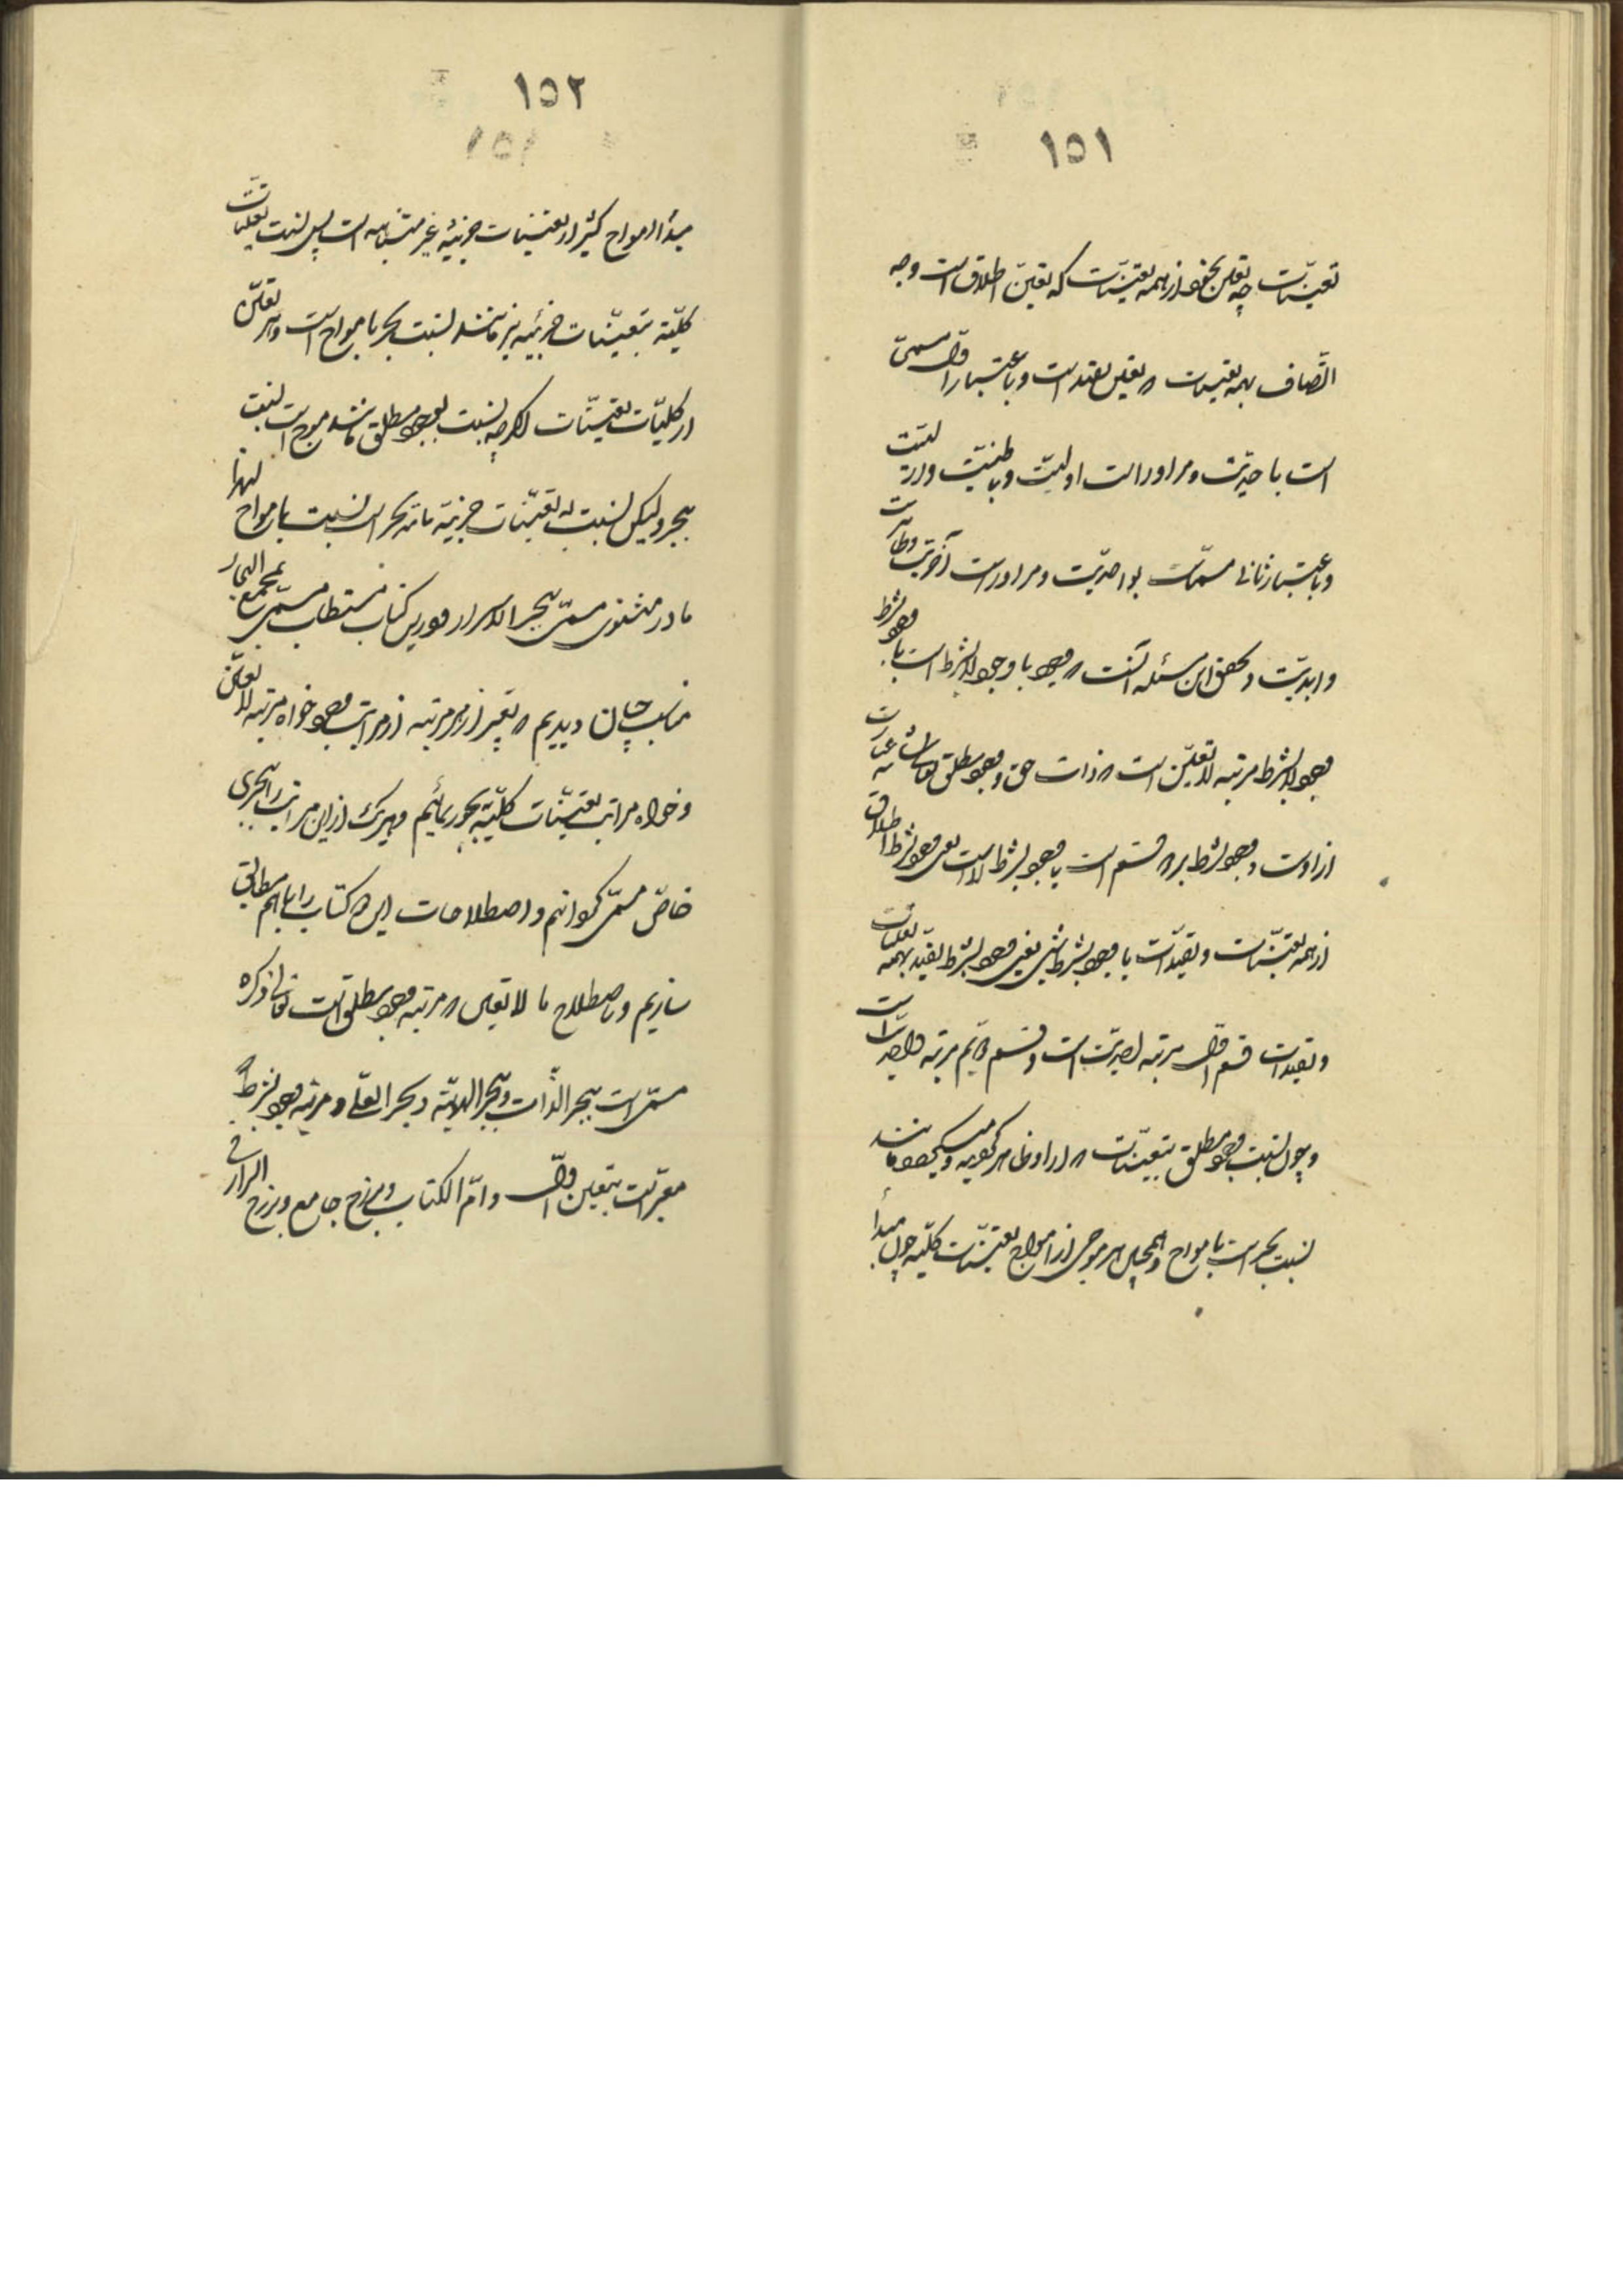 ١٥١
تعینات چه تعین تجرد از همه تعینات که تعین اطلاق است وچه
اتصاف بهمه تعینات که تعین تقید است وباعتبار اول مسمی
است باحدیت ومر اوراست اولیت وباطنیت وازلیت
وباعتبار ثانی مسمات بواحدیت ومر اوراست آخریت وظاهریت
وابدیت وتحقیق این مسئله آنست که وجود یا وجود لابشرط است یا وجود بشرط
وجود لابشرط مرتبه لاتعین است که ذات حق و وجود مطلق عبارت
از اوست و وجود بشرط بر دو قسم است یا وجود بشرط لاست یعنی وجود بشرط اطلاق
از همه تعینات وتقیدات یا وجود بشرط شیء یعنی وجود بشرط تقید بهمه تعینات
وتقیدات قسم اول مرتبه احدیت است وقسم دویم مرتبه واحدیت است
وچون نسبت وجود مطلق بتعینات که از او ظاهر
نسبت بحر است بامواج وهمچنین هر موجی از امواج تعینات کلیه چون مبدأ
١٥٢
مبدأ امواج کثیر از تعینات جزئیه غیر متناهیه است پس نسبت تعینات
کلیه بتعینات جزئیه نیز مانند نسبت بحر بامواج است وهر تعین
از کلیات تعینات اگرچه نسبت بوجود مطلق مانند موج است نسبت
ببحر ولیکن نسبت به تعینات جزئیه مانند بحر است نسبت بامواج لهذا
ما در مثنوی مسمی ببحر الاسرار ودر این کتاب مستطاب مسمی بمجمع البحار
مناسب چنان دیدیم که تعبیر از هر مرتبه از مراتب وجود خواه مرتبه لاتعین
وخواه مراتب تعینات کلیه ببحور نمائیم وهر یک از این مراتب را ببحری
خاص مسمی گردانیم واصطلاحات این دو کتاب را با هم مطابق
سازیم وباصطلاح ما لاتعین که مرتبه وجود مطلق است تعالی ذکره
مسمی است ببحر الذات وبحر الهویة وبحر العماء ومرتبه وجود بشرط
معبر است بتعین اول وام الکتاب وبرزخ جامع وبرزخ